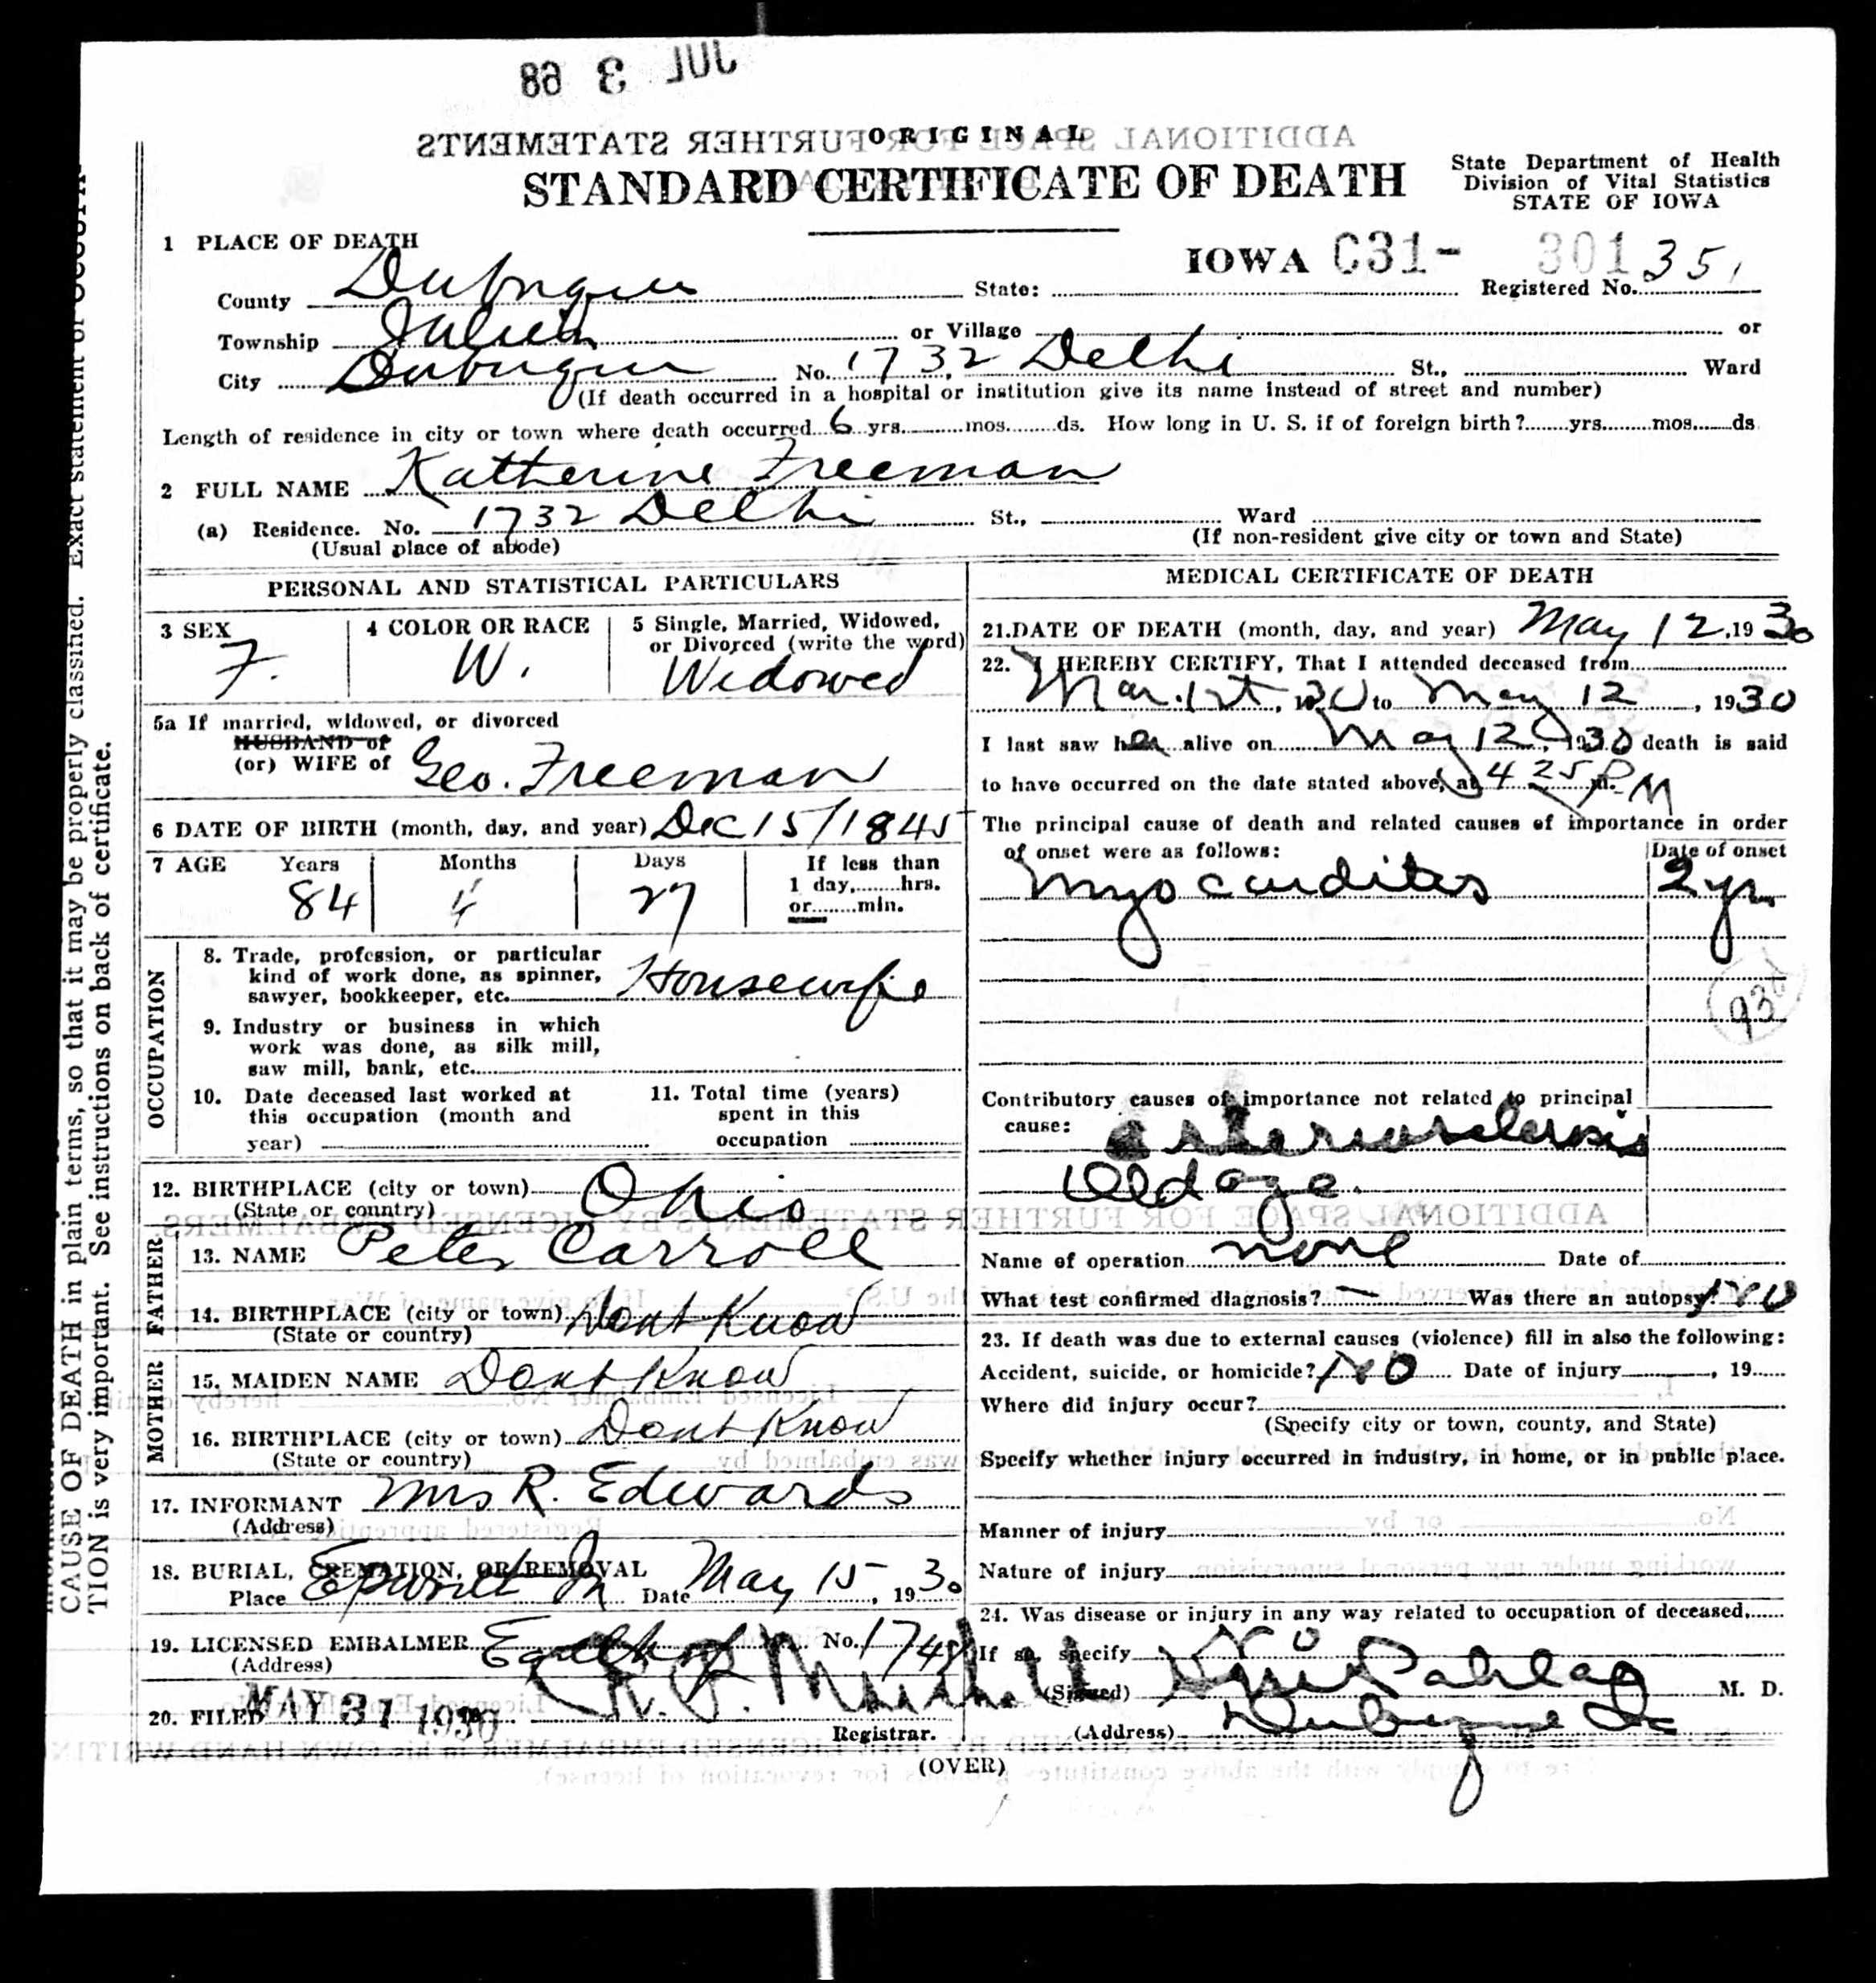 JUL 3 68
ADDITIONAL SPACE FOR FURTHER STATEMENTS
ORIGINAL
STANDARD CERTIFICATE OF DEATH
State Department of Health
Division of Vital Statistics
STATE OF IOWA
1 PLACE OF DEATH
IOWA C31- 301
County Dubuque State: Registered No. 351
Township Julien or Village or
City Dubuque No. 1732 Delhi St., Ward
(If death occurred in a hospital or institution give its name instead of street and number)
Length of residence in city or town where death occurred 6 yrs. mos. ds. How long in U. S. if of foreign birth? yrs. mos. ds.
2 FULL NAME Katherine Freeman
(a) Residence. No. 1732 Delhi St., Ward
(Usual place of abode) (If non-resident give city or town and State)
PERSONAL AND STATISTICAL PARTICULARS
3 SEX F.
4 COLOR OR RACE W.
5 Single, Married, Widowed,
or Divorced (write the word)
Widowed
5a If married, widowed, or divorced
HUSBAND of
(or) WIFE of Geo. Freeman
6 DATE OF BIRTH (month, day, and year) Dec 15/1845
7 AGE Years Months Days If less than
84 4 27 1 day, hrs.
or min.
OCCUPATION
8. Trade, profession, or particular
kind of work done, as spinner,
sawyer, bookkeeper, etc. Housewife
9. Industry or business in which
work was done, as silk mill,
saw mill, bank, etc.
10. Date deceased last worked at
this occupation (month and
year)
11. Total time (years)
spent in this
occupation
12. BIRTHPLACE (city or town) Ohio
(State or country)
FATHER
13. NAME Peter Carroll
14. BIRTHPLACE (city or town) Dont Know
(State or country)
MOTHER
15. MAIDEN NAME Dont Know
16. BIRTHPLACE (city or town) Dont Know
(State or country)
17. INFORMANT Mrs R. Edwards
(Address)
18. BURIAL, CREMATION, OR REMOVAL
Place Epworth Ia Date May 15, 1930
19. LICENSED EMBALMER No. 1748
(Address)
20. FILED MAY 31 1930
Registrar.
MEDICAL CERTIFICATE OF DEATH
21. DATE OF DEATH (month, day, and year) May 12, 1930
22. I HEREBY CERTIFY, That I attended deceased from
Mar. 1st, 30 to May 12, 1930
I last saw her alive on May 12, 1930 death is said
to have occurred on the date stated above, at 4 25 P.M m.
The principal cause of death and related causes of importance in order
of onset were as follows: Date of onset
Myocarditis 2 yr
93
Contributory causes of importance not related to principal
cause: Arteriosclerosis
Old age.
ADDITIONAL SPACE FOR FURTHER STATEMENTS BY LICENSED EMBALMERS.
Name of operation none Date of
What test confirmed diagnosis? — Was there an autopsy? No
23. If death was due to external causes (violence) fill in also the following:
Accident, suicide, or homicide? No Date of injury , 19
Where did injury occur?
(Specify city or town, county, and State)
Specify whether injury occurred in industry, in home, or in public place.
Manner of injury
Nature of injury
24. Was disease or injury in any way related to occupation of deceased,
If so, specify No
(Signed) M. D.
(Address) Dubuque Ia
(OVER)
CAUSE OF DEATH in plain terms, so that it may be properly classified. Exact statement of OCCUPA-
TION is very important. See instructions on back of certificate.